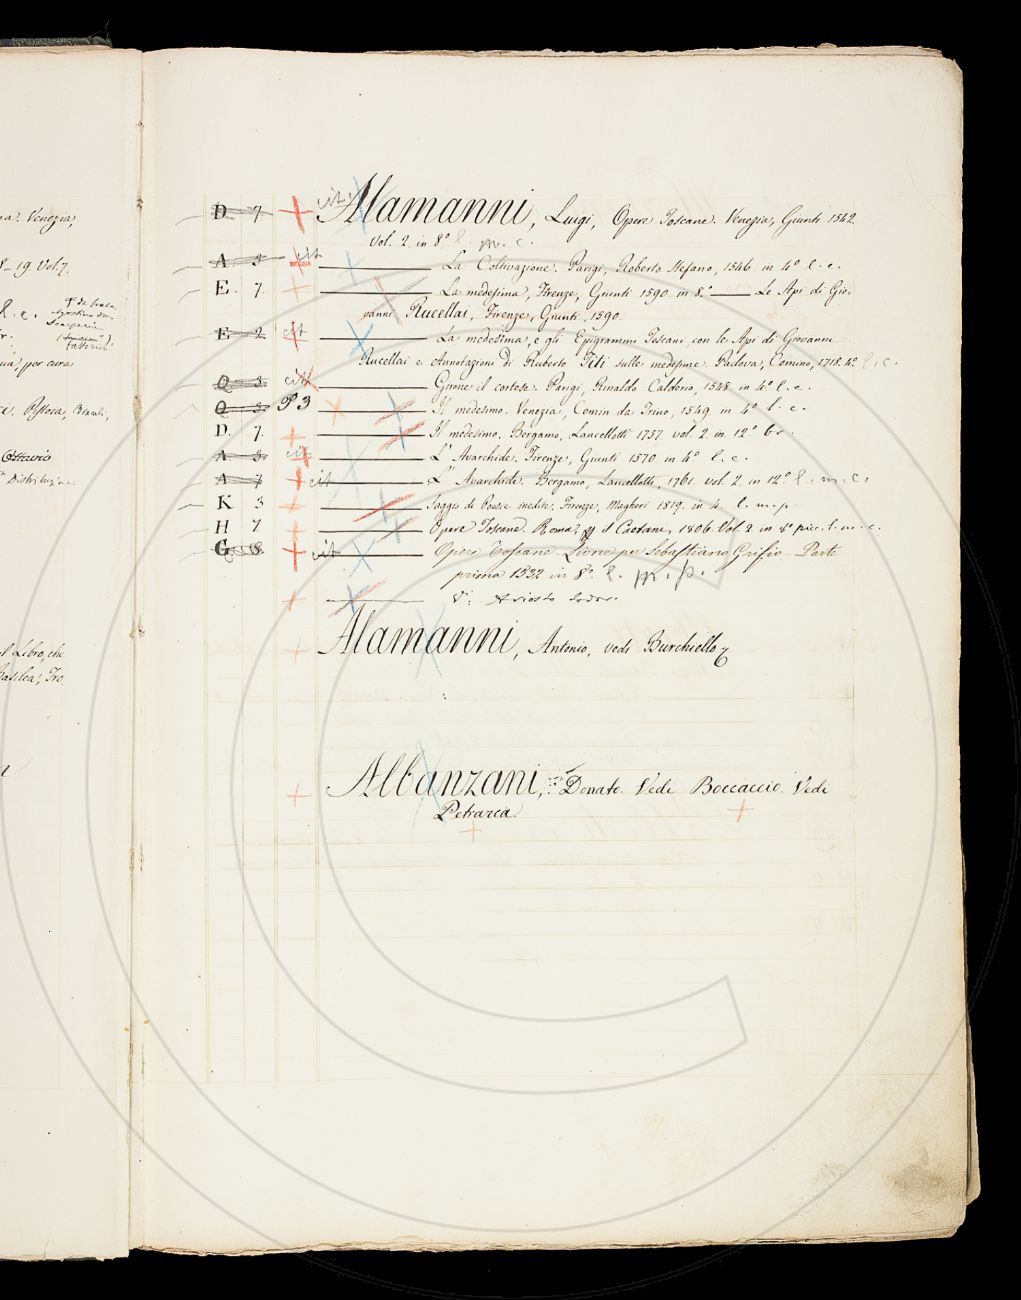 a. Venezia,
8-19. Vol. 7.
l. c.
per cura
Pistora,
Ottavio
Distribuzione
l Libro, che
Basilea, Fro
D 7 cit. Alamanni, Luigi, Opere Toscane. Venezia, Giunti 1542.
Vol. 2. in 8.° l. m. c.
A 5 cit ——— La Coltivazione. Parigi, Roberto Stefano, 1546. in 4.° l. c.
E. 7. ——— La medesima, Firenze, Giunti 1590. in 8.° ——— Le Api di Gio,
vanni Rucellai, Firenze, Giunti, 1590.
E 2 cit ——— La medesima, e gli Epigrammi Toscani, con le Api di Giovanni
Rucellai e Annotazioni di Ruberto Titi sulle medesime. Padova, Comino, 1718. 4.° l. c.
Q 3. cit ——— Girone il cortese. Parigi, Rinaldo Calderio, 1548. in 4.° l. c.
Q 5 P 3 ——— Il medesimo. Venezia, Comin da Trino, 1549. in 4.° l. c.
D. 7. ——— Il medesimo. Bergamo, Lancellotti 1757. vol. 2. in 12.° br.
A 5 cit ——— L'Avarchide. Firenze, Giunti 1570. in 4.° l. c.
A 7 cit ——— L'Avarchide. Bergamo, Lancellotti, 1761. vol. 2. in 12.° l. m. c.
K 3 ——— Saggio di Poesie inedite. Firenze, Magheri 1819. in 4. l. m. p.
H 7 ——— Opere Toscane. Roma, il Caetani, 1806. Vol. 2. in 8.° picc. l. m. c.
G 8. cit ——— Opere Toscane. Lione per Sebastiano Grifio. Parte
prima 1532 in 8.° l. m. p.
——— V. Ariosto Lodov.
Alamanni, Antonio, vedi Burchiello
Albanzani, Donato. Vedi Boccaccio. Vedi
Petrarca.